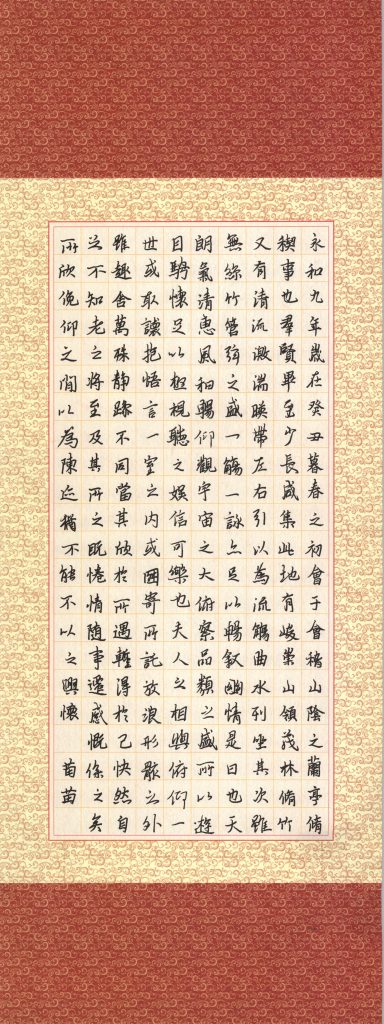 永和九年歲在癸丑暮春之初會于會稽山陰之蘭亭脩
禊事也羣賢畢至少長咸集此地有峻崇山領茂林脩竹
又有清流激湍暎帶左右引以為流觴曲水列坐其次雖
無絲竹管弦之盛一觴一詠亦足以暢敘幽情是日也天
朗氣清惠風和暢仰觀宇宙之大俯察品類之盛所以遊
目騁懷足以極視聽之娛信可樂也夫人之相與俯仰一
世或取諸抱悟言一室之内或因寄所託放浪形骸之外
雖趣舍萬殊靜躁不同當其欣於所遇蹔得於己快然自
足不知老之將至及其所之既惓情隨事遷感慨係之矣
所欣俛仰之間以為陳迹猶不能不以之興懷 苗苗